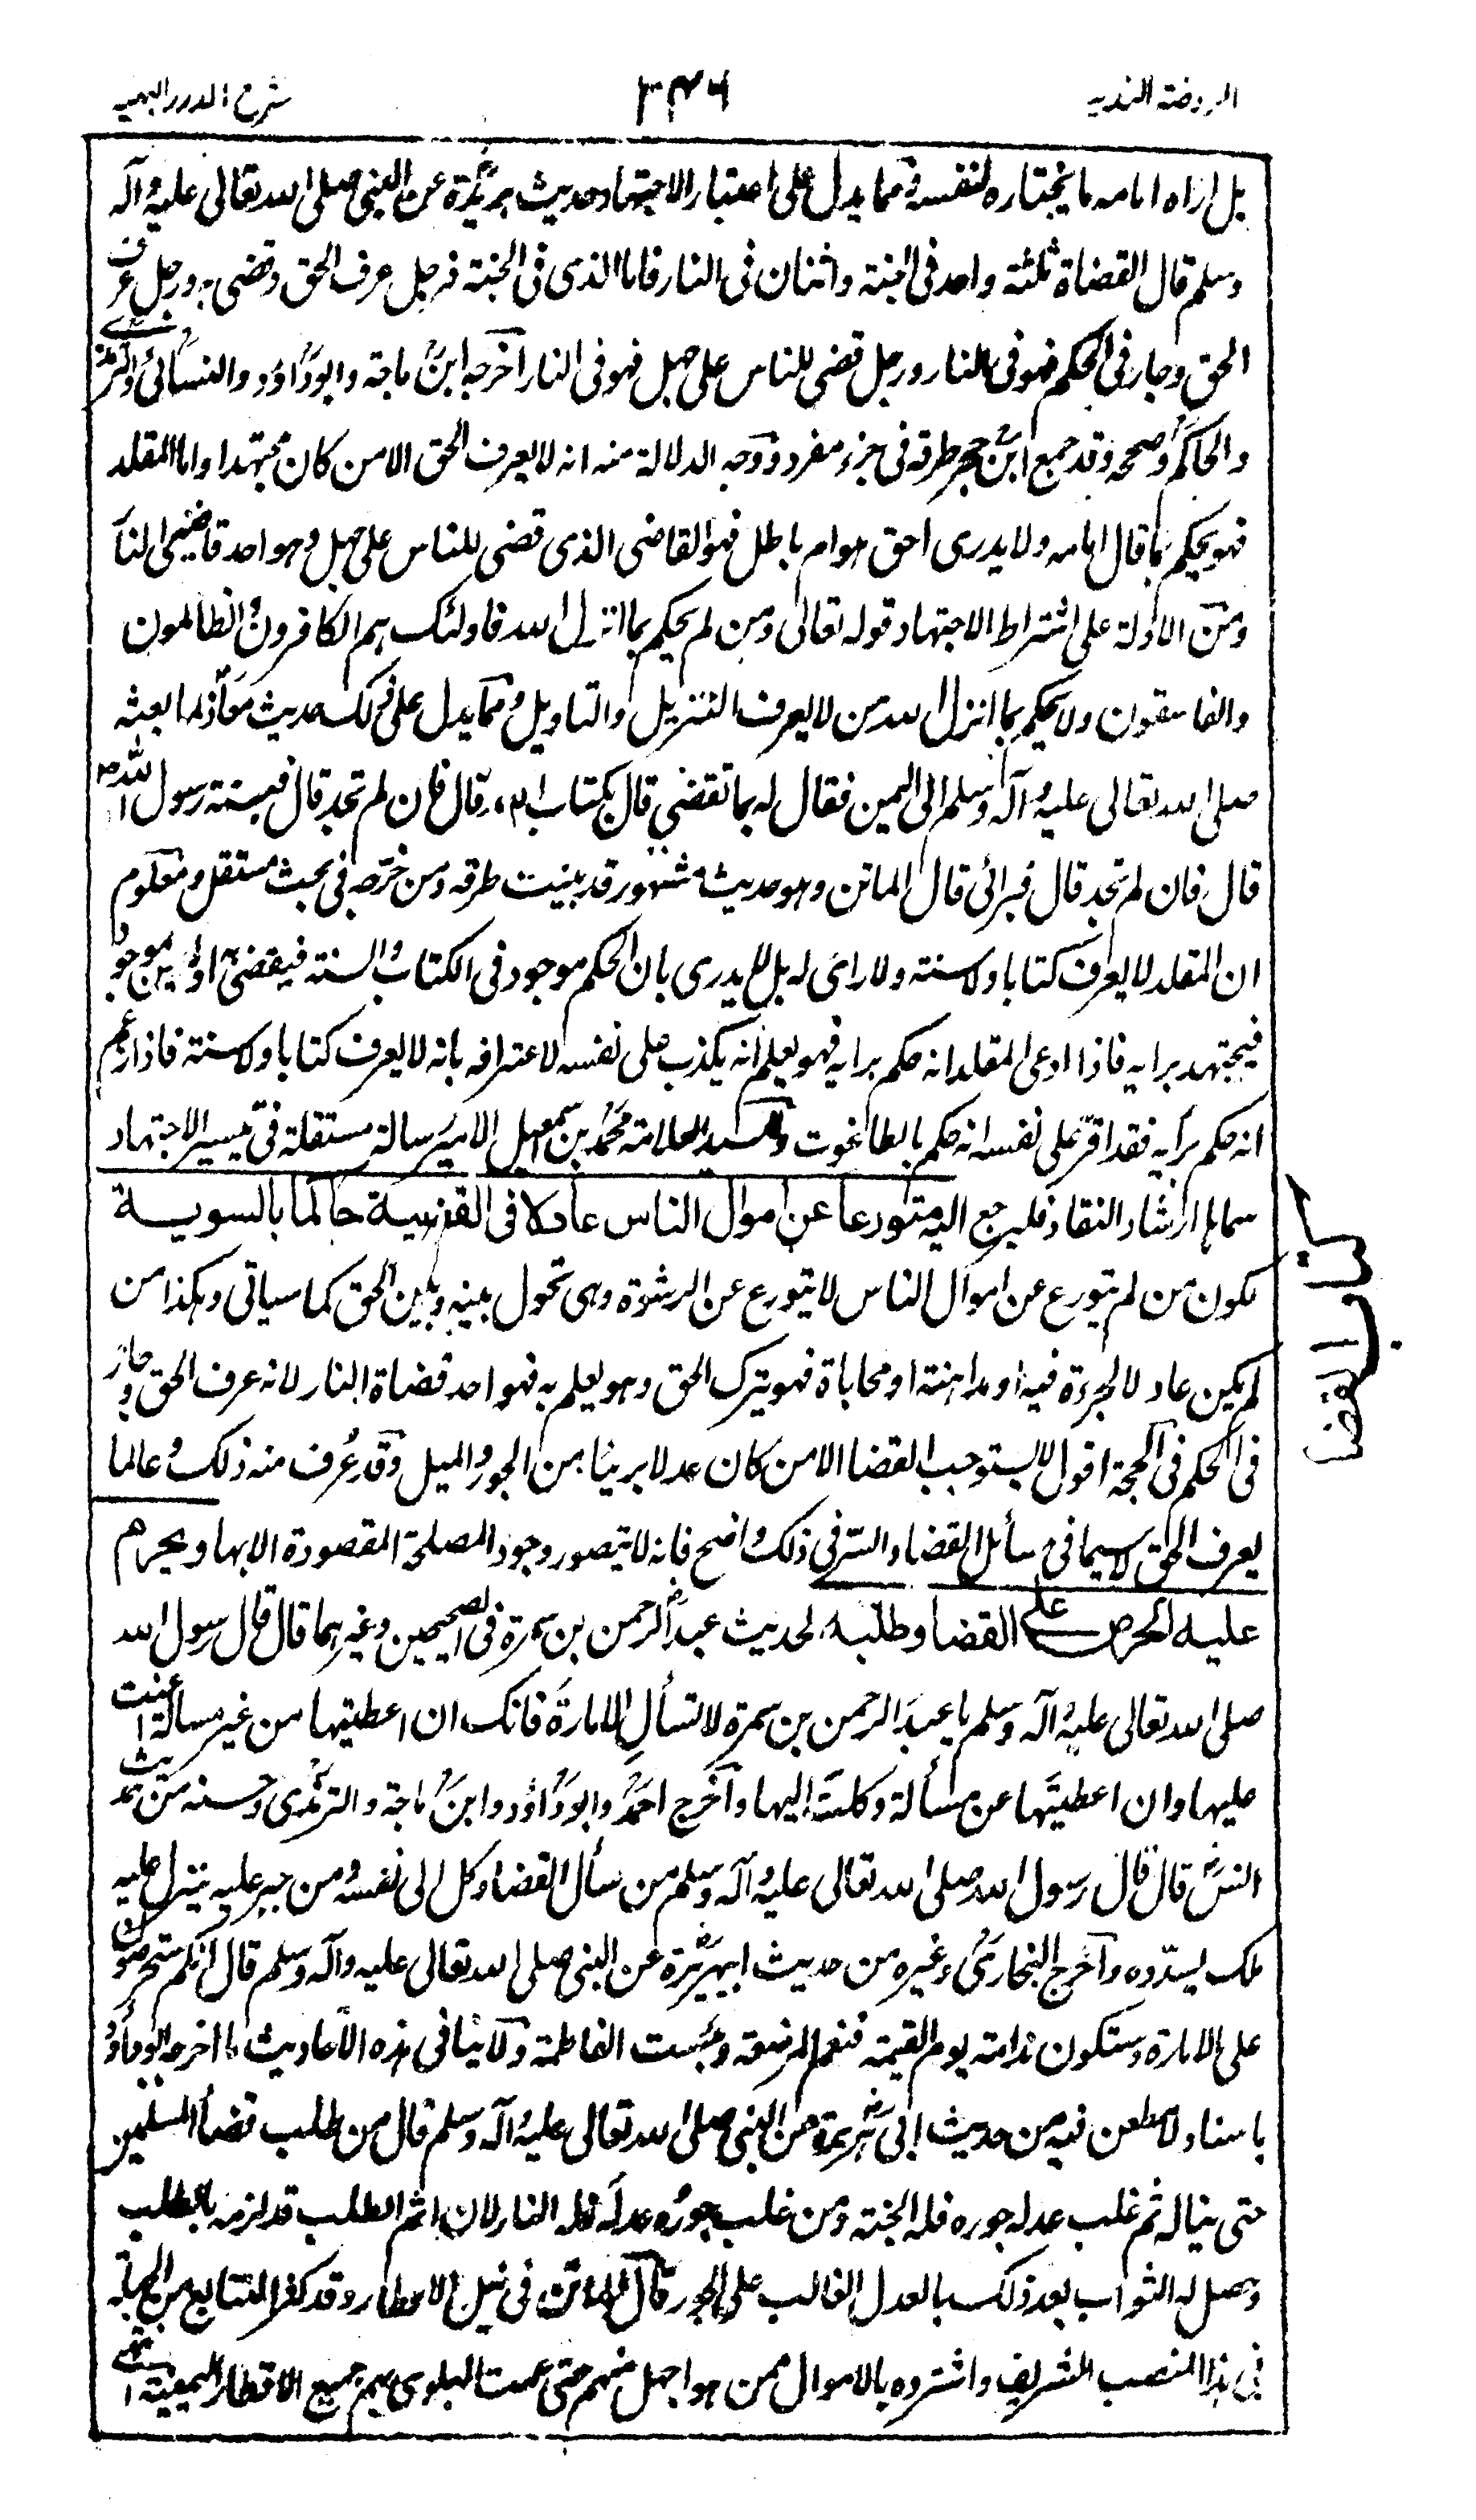 الروضة الندية
٣٣٦
شرح الدرر البهية
بل اراه امامه ما يختاره لنفسه ومما يدل على اعتبار الاجتهاد حديث بريدة عن النبي صلى الله تعالى عليه وآله
وسلم قال القضاة ثلثة واحد في الجنة واثنان في النار فاما الذي في الجنة فرجل عرف الحق وقضى به ورجل عرف
الحق وجار في الحكم فهو في النار ورجل قضى للناس على جهل فهو في النار اخرجه ابن ماجة وابو داود والنسائي والترمذي
والحاكم وصححه وقد جمع ابن حجر طرقه في جزء مفرد ووجه الدلالة منه انه لا يعرف الحق الا من كان مجتهدا واما المقلد
فهو يحكم بما قال امامه ولا يدري احق هو ام باطل فهو القاضي الذي قضى للناس على جهل وهو احد قاضيي النار
ومن الادلة على اشتراط الاجتهاد قوله تعالى ومن لم يحكم بما انزل الله فاولئك هم الكافرون الظالمون
والفاسقون ولا يحكم بما انزل الله من لا يعرف التنزيل والتاويل ومما يدل على ذلك حديث معاذ لما بعثه
صلى الله تعالى عليه وآله وسلم الى اليمن فقال له بما تقضي قال بكتاب الله قال فان لم تجد قال فبسنة رسول الله
قال فان لم تجد قال فبرائي قال الماتن وهو حديث مشهور قد بينت طرقه ومن خرجه في بحث مستقل ومعلوم
ان المقلد لا يعرف كتابا ولا سنة ولا راي له بل لا يدري بان الحكم موجود في الكتاب والسنة فيقضي به او ليس بموجود
فيجتهد برايه فاذا ادعى المقلد انه حكم برايه فهو يعلم انه يكذب على نفسه لاعترافه بانه لا يعرف كتابا ولا سنة فاذا زعم
انه حكم برايه فقد اقر على نفسه انه حكم بالطاغوت وللسيد العلامة محمد بن اسمعيل الامير رسالة مستقلة في تيسير الاجتهاد
سماها ارشاد النقاد فليرجع اليه متورعا عن اموال الناس عادلا في القضية حاكما بالسوية
لكون من لم يتورع عن اموال الناس لا يتورع عن الرشوة وهي تحول بينه وبين الحق كما سياتي وهكذا من
لم يكن عادلا لجرءة فيه او مداهنة او محاباة فهو يترك الحق وهو يعلم به فهو احد قضاة النار لانه عرف الحق وجار
في الحكم في الحجة اقول لا يستوجب القضا الا من كان عدلا بريئا من الجور والميل وقد عرف منه ذلك وعالما
يعرف الحق لا سيما في مسائل القضا والسر في ذلك واضح فانه لا يتصور وجود المصلحة المقصودة الا بها ويحرم
عليه الحرص على القضا وطلبه لحديث عبد الرحمن بن سمرة في الصحيحين وغيرهما قال قال رسول الله
صلى الله تعالى عليه وآله وسلم يا عبد الرحمن بن سمرة لا تسأل الامارة فانك ان اعطيتها من غير مسألة اعنت
عليها وان اعطيتها عن مسألة وكلت اليها واخرج احمد وابو داود وابن ماجة والترمذي وحسنه من حديث
انس قال قال رسول الله صلى الله تعالى عليه وآله وسلم من سأل القضا وكل الى نفسه ومن جبر عليه ينزل عليه
ملك يسدده واخرج البخاري وغيره من حديث ابي هريرة عن النبي صلى الله تعالى عليه وآله وسلم قال انكم ستحرصون
على الامارة وستكون ندامة يوم القيمة فنعم المرضعة وبئست الفاطمة ولا ينافي هذه الاحاديث ما اخرجه ابو داود
باسناد لا مطعن فيه من حديث ابي هريرة عن النبي صلى الله تعالى عليه وآله وسلم قال من طلب قضاء المسلمين
حتى يناله ثم غلب عدله جوره فله الجنة ومن غلب جوره عدله فله النار لان اثم الطلب قد لزمه بالطلب
وحصل له الثواب بعد ذلك بالعدل الغالب على الجور قال الماتن في نيل الاوطار وقد كثر التتابع من الجهلة
في هذا المنصب الشريف واشتروه بالاموال ممن هو اجهل منهم حتى عمت البلوى بهم جميع الاقطار اليمنية انتهى
كتاب القضا